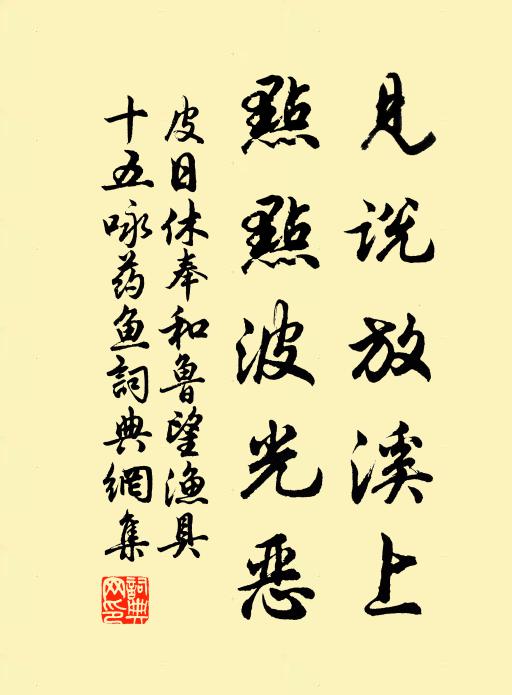 見說放溪上
點點波光惡
皮日休奉和魯望漁具
十五咏药鱼詞典網集
詞典
网印